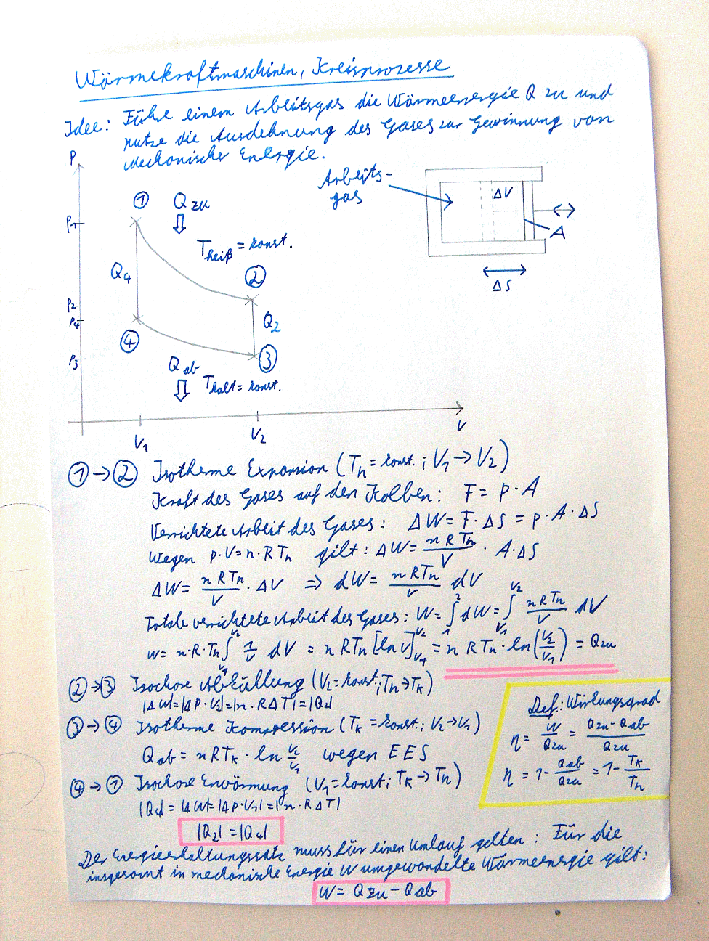 Wärmekraftmaschinen, Kreisprozesse
Idee: Führe einem Arbeitsgas die Wärmeenergie Q zu und
nutze die Ausdehnung des Gases zur Gewinnung von
mechanischer Energie.
P
① Q zu
⇓
T heiß = konst.
Arbeits-
gas
ΔV
A
ΔS
P1
Q4
②
P2
P4
Q2
④
③
P3
Q ab
⇓ T kalt = konst.
V1
V2
V
① → ② Isotherme Expansion (Tn = konst. ; V1 → V2)
Kraft des Gases auf den Kolben: F = p · A
Verrichtete Arbeit des Gases: ΔW = F · ΔS = p · A · ΔS
Wegen p · V = n · R Tn gilt: ΔW = n R Tn / V · A · ΔS
ΔW = n R Tn / V · ΔV ⇒ dW = n R Tn / V dV
Totale verrichtete Arbeit des Gases: W = ∫₁² dW = ∫_V1^V2 n R Tn / V dV
W = n · R · Tn ∫_V1^V2 1/V dV = n R Tn [ln V]_V1^V2 = n R Tn · ln(V2/V1) = Q zu
② → ③ Isochore Abkühlung (V2 = konst ; Tn → TK)
|ΔW| = |Δp · V2| = |n · R ΔT| = |Q2|
③ → ④ Isotherme Kompression (TK = konst ; V2 → V1)
Q ab = n R TK · ln V2/V1 wegen EES
④ → ① Isochore Erwärmung (V1 = konst ; TK → Tn)
|Q4| = |ΔW| = |Δp · V1| = |n · R ΔT|
|Q2| = |Q4|
Def.: Wirkungsgrad
η = W / Q zu = Q zu - Q ab / Q zu
η = 1 - Q ab / Q zu = 1 - TK / Tn
Der Energieerhaltungssatz muss für einen Umlauf gelten: Für die
insgesamt in mechanische Energie W umgewandelte Wärmeenergie gilt:
W = Q zu - Q ab